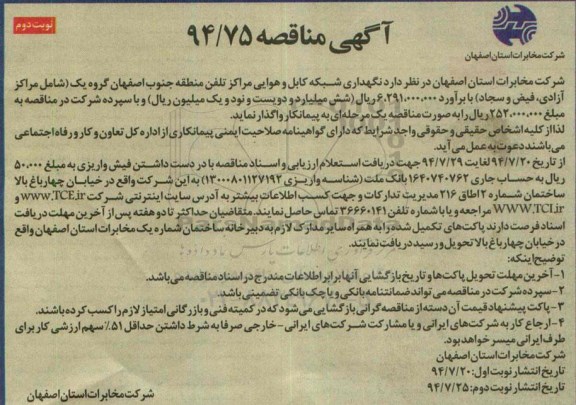 نوبت دوم
آگهی مناقصه ۹۴/۷۵
شرکت مخابرات استان اصفهان
شرکت مخابرات استان اصفهان در نظر دارد نگهداری شبکه کابل و هوایی مراکز تلفن منطقه جنوب اصفهان گروه یک (شامل مراکز
آزادی، فیض و سجاد) با برآورد ۶،۲۹۱،۰۰۰،۰۰۰ ریال (شش میلیارد و دویست و نود و یک میلیون ریال) و با سپرده شرکت در مناقصه به
مبلغ ۲۵۲،۰۰۰،۰۰۰ ریال را به صورت مناقصه یک مرحله‌ای به پیمانکار واگذار نماید.
لذا از کلیه اشخاص حقیقی و حقوقی واجد شرایط که دارای گواهینامه صلاحیت ایمنی پیمانکاری از اداره کل تعاون و کار و رفاه اجتماعی
می باشند دعوت به عمل می آید.
از تاریخ ۹۴/۷/۲۰ لغایت ۹۴/۷/۲۹ جهت دریافت استعلام ارزیابی و اسناد مناقصه با در دست داشتن فیش واریزی به مبلغ ۵۰،۰۰۰
ریال به حساب جاری ۱۶۴۰۷۴۰۷۶۲ بانک ملت (شناسه واریزی ۱۳۰۰۰۸۰۱۱۲۷۱۹۲) به این شرکت واقع در خیابان چهارباغ بالا
ساختمان شماره ۲ اطاق ۲۱۶ مدیریت تدارکات و جهت کسب اطلاعات بیشتر به آدرس سایت اینترنتی شرکت www.TCE.ir و
WWW.TCI.ir مراجعه و یا با شماره تلفن ۳۶۶۶۰۱۴۱ تماس حاصل نمایند. متقاضیان حداکثر تا دو هفته پس از آخرین مهلت دریافت
اسناد فرصت دارند پاکت‌های تکمیل شده را به همراه سایر مدارک لازم به دبیرخانه ساختمان شماره یک مخابرات استان اصفهان واقع
در خیابان چهارباغ بالا تحویل و رسید دریافت نمایند.
توضیح اینکه:
۱- آخرین مهلت تحویل پاکت‌ها و تاریخ بازگشایی آنها برابر اطلاعات مندرج در اسناد مناقصه می‌باشد.
۲- سپرده شرکت در مناقصه می تواند ضمانتنامه بانکی و یا چک بانکی تضمینی باشد.
۳- پاکت پیشنهاد قیمت آن دسته از مناقصه گرانی بازگشایی می‌شود که در کمیته فنی و بازرگانی امتیاز لازم را کسب کرده باشند.
۴- ارجاع کار به شرکت‌های ایرانی و یا مشارکت شرکت‌های ایرانی - خارجی صرفا به شرط داشتن حداقل ۵۱٪ سهم ارزشی کار برای
طرف ایرانی میسر خواهد بود.
شرکت مخابرات استان اصفهان
تاریخ انتشار نوبت اول: ۹۴/۷/۲۰
تاریخ انتشار نوبت دوم: ۹۴/۷/۲۵
شرکت مخابرات استان اصفهان